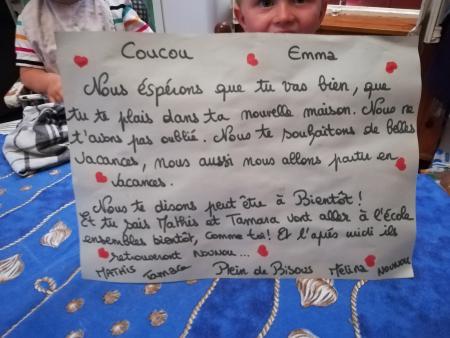 Coucou Emma
Nous éspérons que tu vas bien, que
tu te plais dans ta nouvelle maison. Nous ne
t'avons pas oublié. Nous te souhaitons de belles
vacances, nous aussi nous allons partir en
vacances.
Nous te disons peut être à Bientôt!
Et tu sais Mathis et Tamara vont aller à l'école
ensembles bientôt, comme toi! Et l'après midi ils
retrouveront Nounou...
MATHIS Tamara Plein de Bisous Mélina Nounou